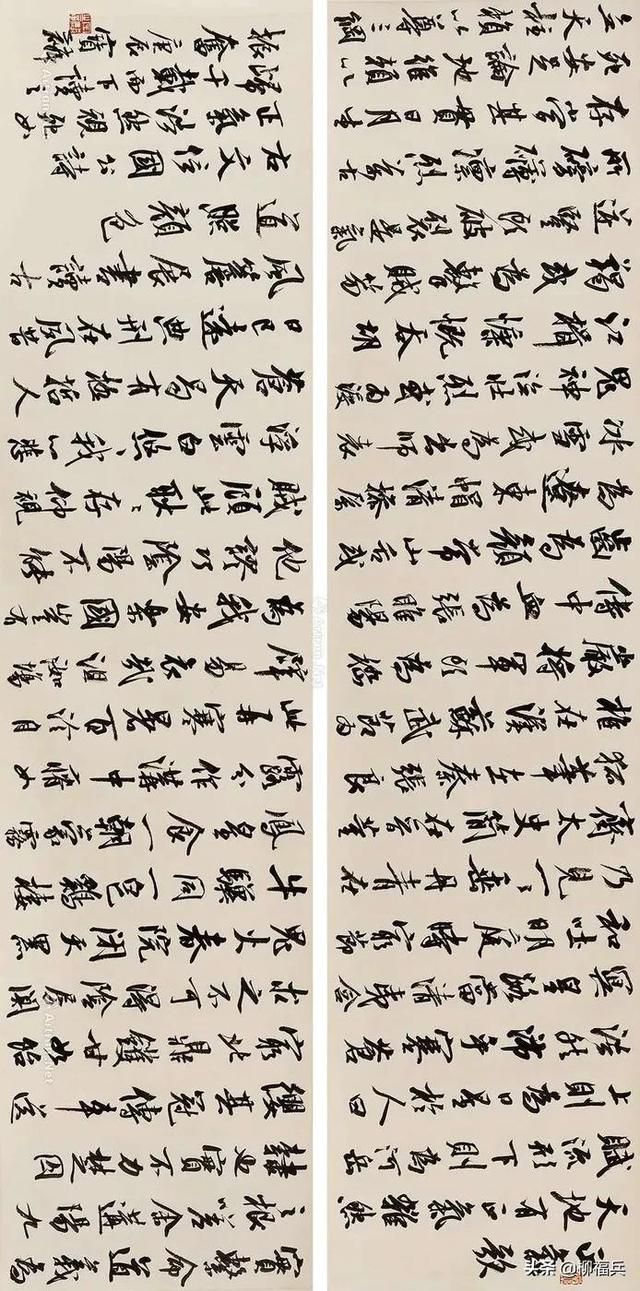 正氣歌
天地有正氣雜然
賦流形下則為河岳
上則為日星於人曰
浩然沛乎塞蒼
冥皇路當清夷含
和吐明庭時窮節
乃見一一垂丹青在
齊太史簡在晉董
狐筆在秦張良
椎在漢蘇武節為
嚴將軍頭為嵇
侍中血為張睢陽
齒為顏常山舌或
為遼東帽清操厲
冰雪或為出師表
鬼神泣壯烈或為渡
江楫慷慨吞胡
羯或為擊賊笏
逆豎頭破裂是氣
所磅礴凜烈萬古
存當其貫日月生
死安足論地維賴以
立天柱賴以尊三綱
實繫命道義為
之根嗟余遘陽九
隸也實不力楚囚
纓其冠傳車送
窮北鼎鑊甘如飴
求之不可得陰房闃
鬼火春院閉天黑
牛驥同一皂雞棲
鳳皇食一朝蒙霧
露分作溝中瘠如
此再寒暑百沴自
辟易哀哉沮洳場
為我安樂國豈有
他繆巧陰陽不能
賊顧此耿耿存仰視
浮雲白悠悠我心悲
蒼天曷有極哲人
日已遠典刑在夙昔
風簷展書讀古
道照顏色
右文信國公詩
正氣浩然視死如
歸千載而下讀之
振奮 庚辰
头条 @柳福兵